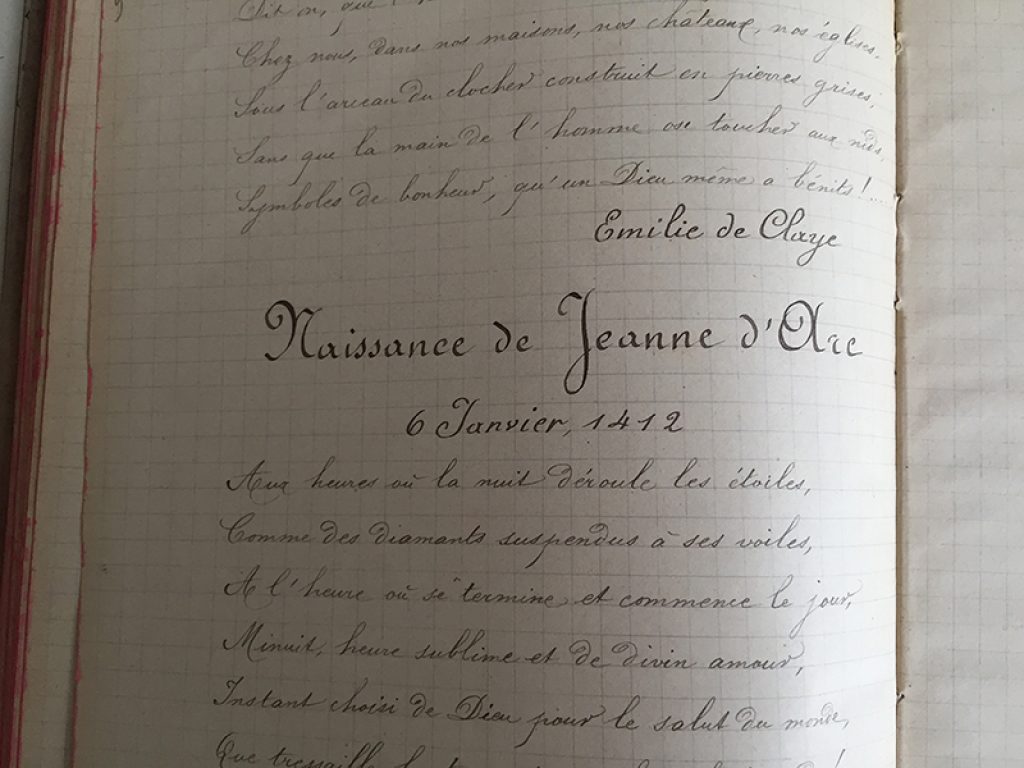 Dit on, que
Chez nous, dans nos maisons, nos châteaux, nos églises,
Sous l'arceau du clocher construit en pierres grises,
Sans que la main de l'homme ose toucher aux nids,
Symboles de bonheur, qu'un Dieu même a bénits!...
Emilie de Claye
Naissance de Jeanne d'Arc
6 Janvier, 1412
Aux heures où la nuit déroule les étoiles,
Comme des diamants suspendus à ses voiles,
A l'heure où se termine et commence le jour,
Minuit, heure sublime et de divin amour,
Instant choisi de Dieu pour le salut du monde,
Que tressaille